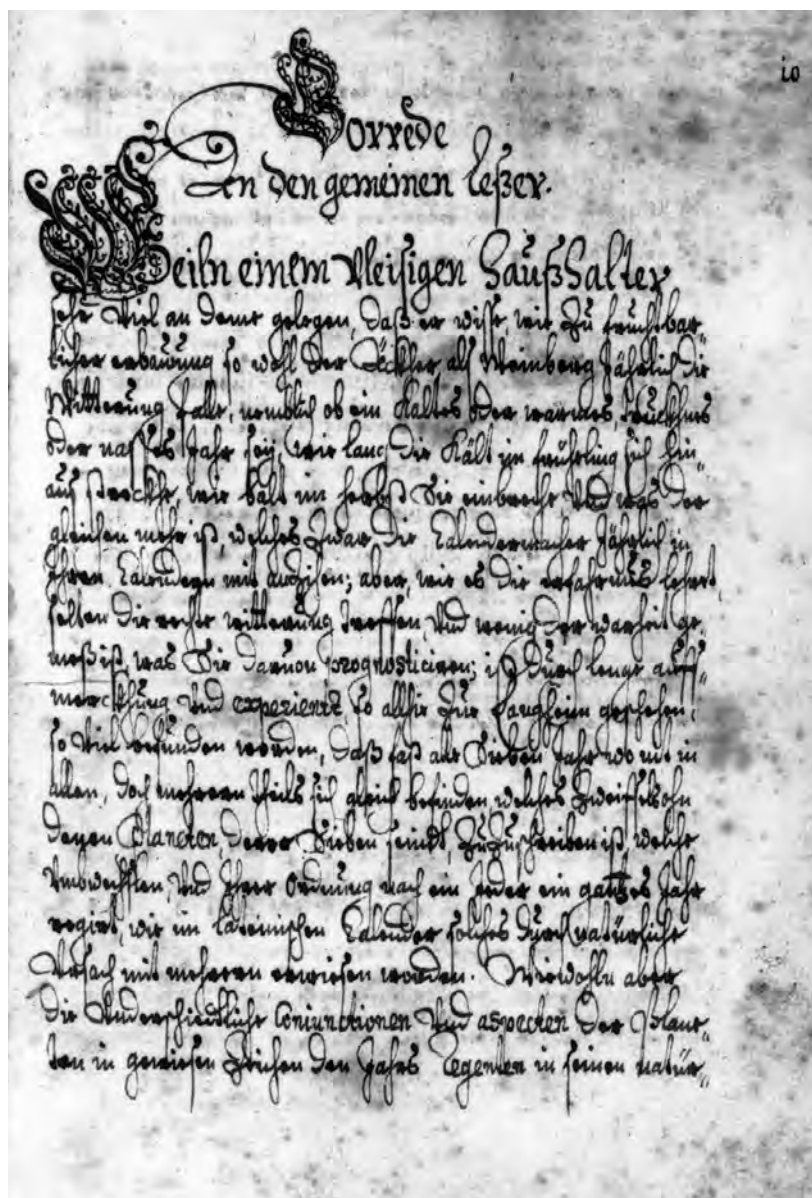 10
Vorrede
An den gemeinen Leßer.
Weiln einem Vleisigen Haußhalter
sehr Viel an deme gelegen, daß er wisse, wie zu fruchtbar„
licher erbauung so wohl der Äckher als Weinberg Jährlich die
Witterung falle, nemblich ob ein Kaltes oder warmes, truckhnes
oder nasses Jahr sey, wie lang die Kält im frührling sich hin„
aus streckhe, wie balt im herbst Sie einbreche Vnd was der
gleichen mehr ist, welches zwar die Calendermacher Jährlich in
Ihren Calendern mit anzihen; aber, wie es die erfahrnus lehret,
selten die rechte witterung treffen, Vnd wenig der warheit ge„
meß ist, was Sie daruon prognosticiren; ist durch lenge auff„
merckhung Vnd experientz, so allhie zue Langheim geschehen,
so Viel befunden worden, daß fast alle Sieben Jahr wo nit in
allen, doch mehrern theils sich gleich befinden, welches zweiffelsohn
denen Planeten, derer Sieben seindt, zuzuschreiben ist, welche
Vmbwechslen, Vnd Ihrer Ordnung nach ein Jeder ein gantzes Jahr
regirt, wie im Lateinischen Calender solches durch natürliche
Vrsach mit mehrern erwiesen worden. Wiewohln aber
die Vnderschiedtliche Coniunctionen Vnd aspecten der Plane„
ten in gewiesen Zeichen den Jahrs Regenten in seinen natür„